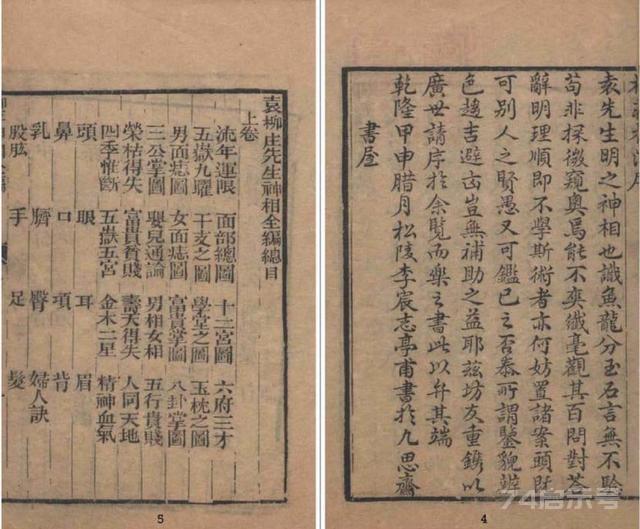 袁先生明之神相也識魚龍分玉石言無不驗
苟非探微窺奧焉能不爽纖毫觀其百問對荅
辭明理順即不學斯術者亦何妨置諸案頭既
可別人之賢愚又可鑑已之否泰所謂鑒貌辨
色趨吉避凶豈無補助之益耶茲坊友重鐫以
廣世請序於余覽而樂之書此以弁其端
乾隆甲申腊月松陵李宸志亭甫書於九思齋
書屋
4
袁柳庄先生神相全編總目
上卷
流年運限 面部總圖 十二宮圖 六府三才
五嶽九曜 干支之圖 學堂之圖 玉枕之圖
男面痣圖 女面痣圖 富貴掌圖 八卦掌圖
三公掌圖 嬰兒通論 男相女相 五行貴賤
榮枯得失 富貴貧賤 壽夭得失 人同天地
四季惟斷 五嶽五宮 金木二星 精神血氣
頭 眼 耳 眉
鼻 口 項 背
乳 臍 臀 婦人訣
股肱 手 足 髮
5